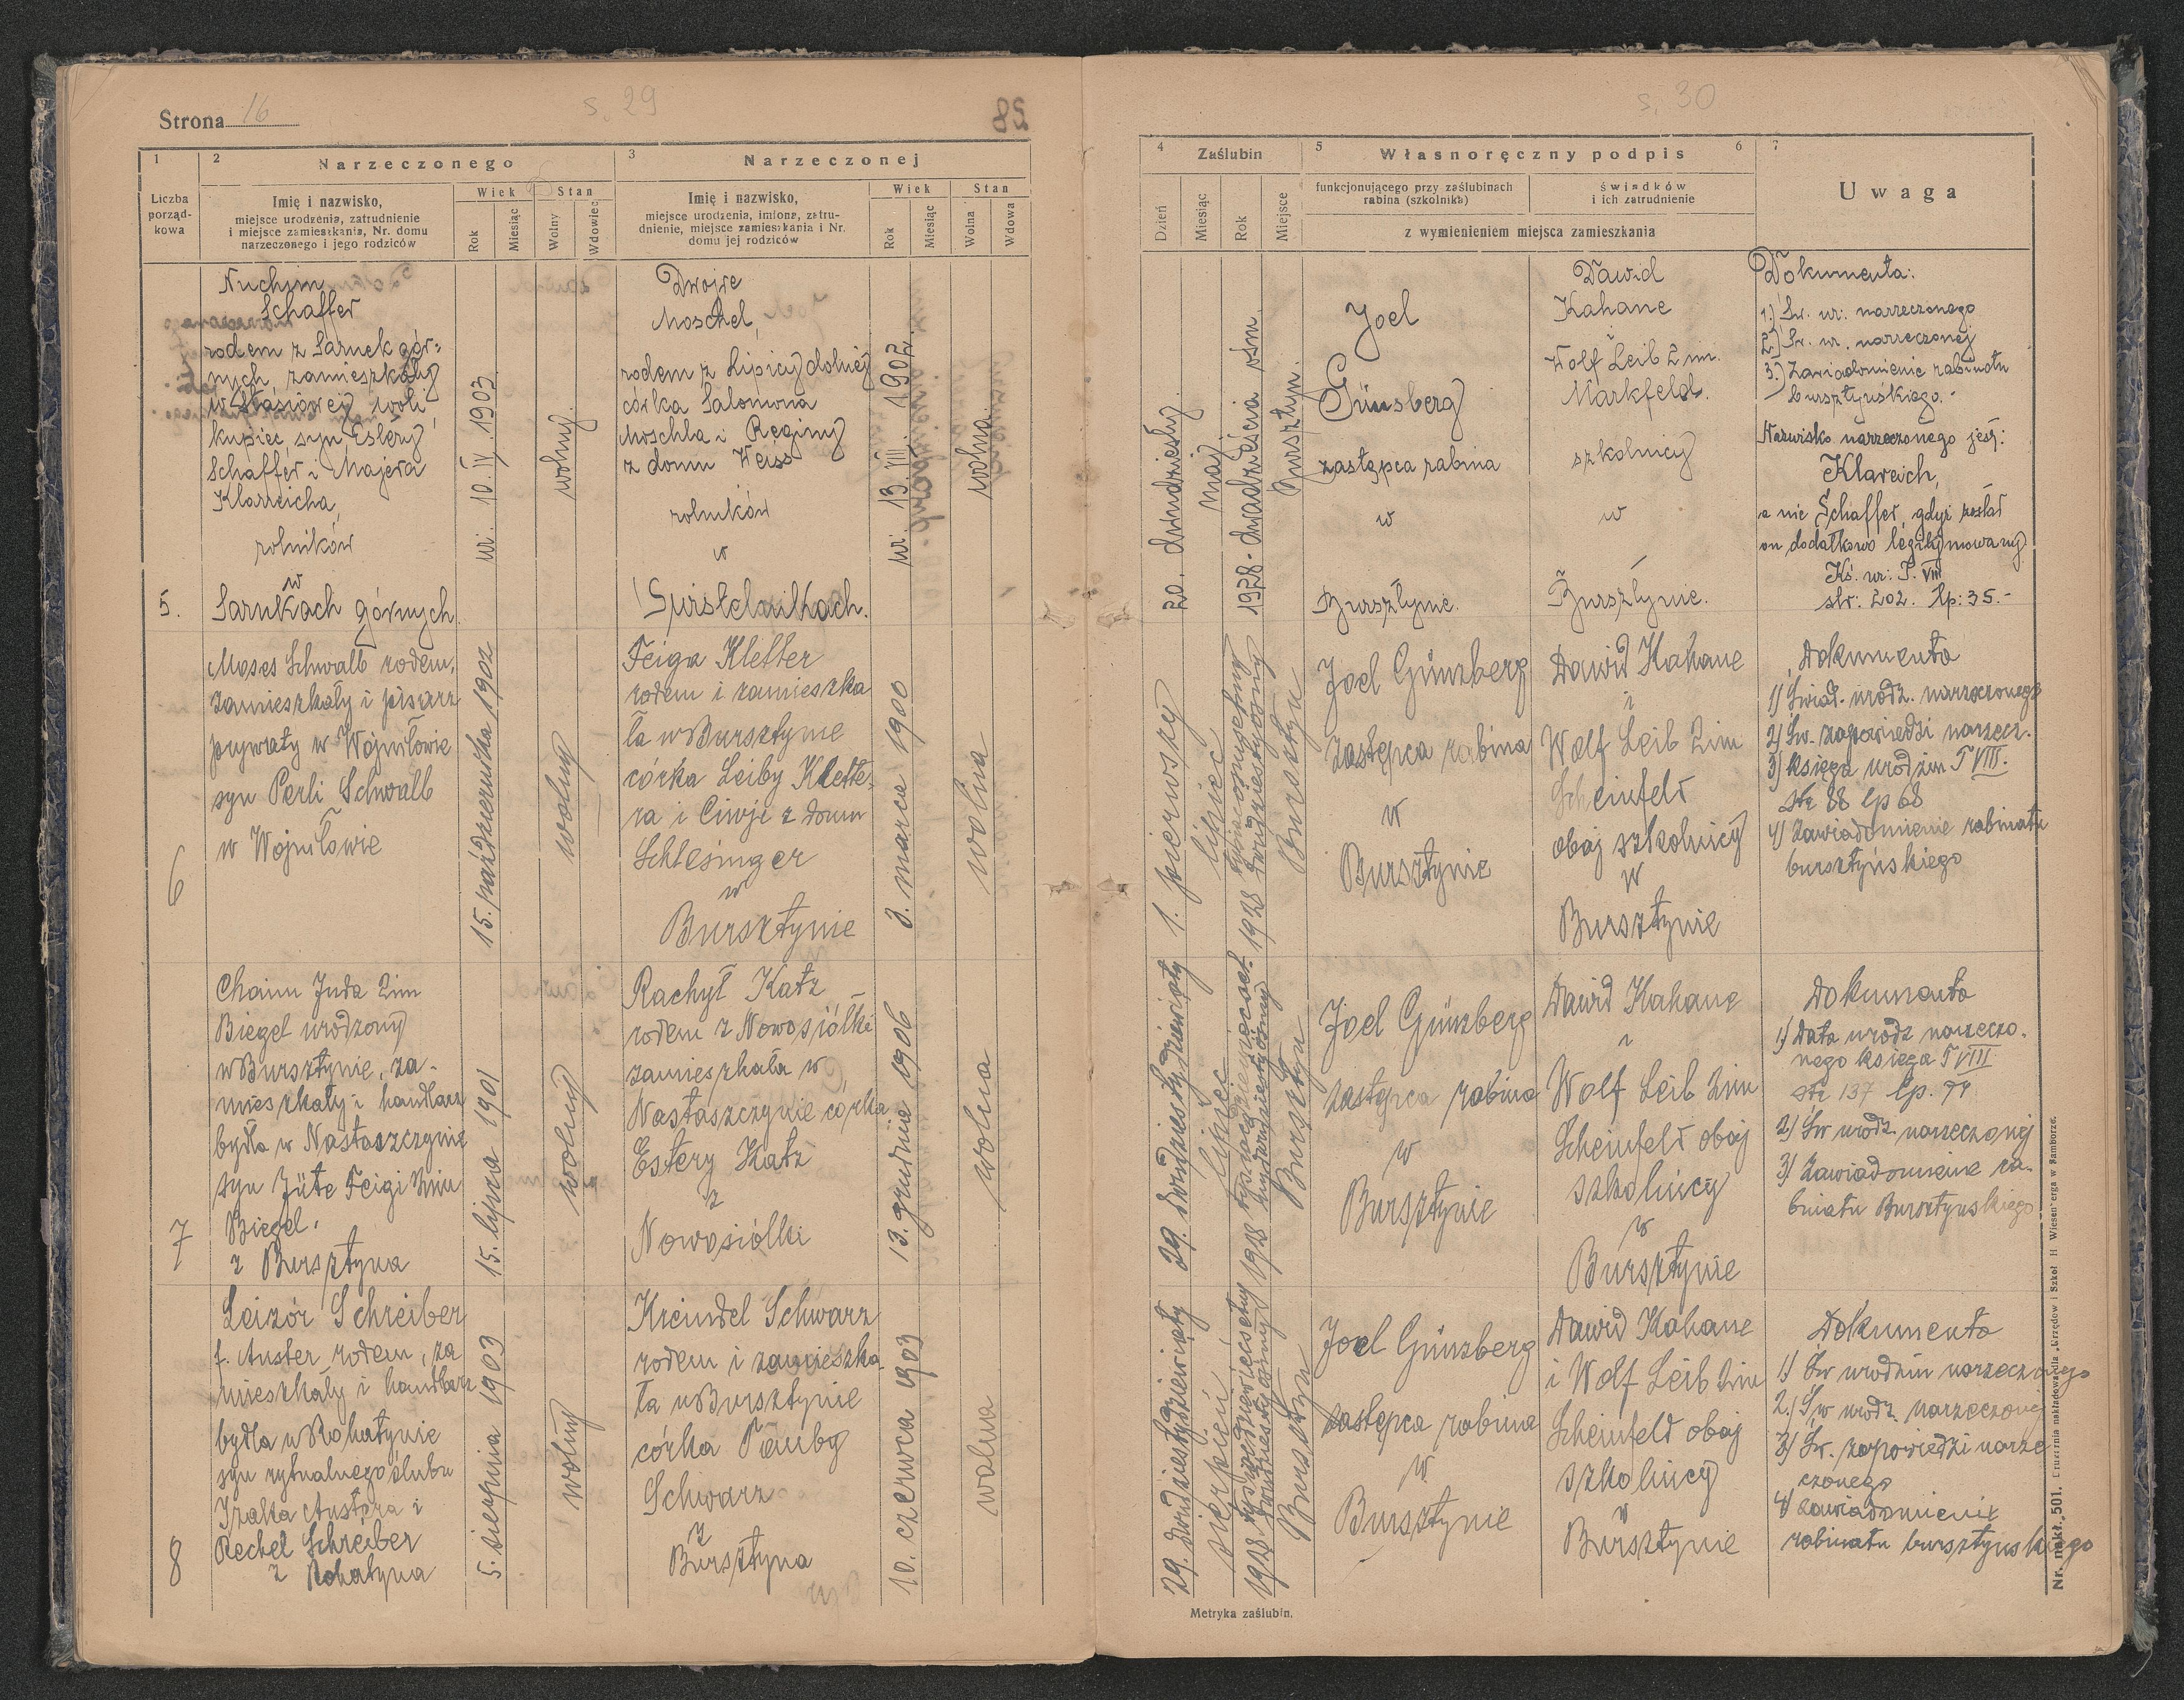 Strona 16
s. 29
85
1
2
Narzeczonego
3
Narzeczonej
Liczba
porząd-
kowa
Imię i nazwisko,
miejsce urodzenia, zatrudnienie
i miejsce zamieszkania, Nr. domu
narzeczonego i jego rodziców
Wiek
Stan
Rok
Miesiąc
Wolny
Wdowiec
Imię i nazwisko,
miejsce urodzenia, imiona, zatru-
dnienie, miejsce zamieszkania i Nr.
domu jej rodziców
Wiek
Stan
Rok
Miesiąc
Wolna
Wdowa
5.
Nuchim
Schaffer
rodem z Sarnek gór-
nych, zamieszkały
woli
kupiec, syn Estery
Schaffer i Majera
Klarreicha,
rolników
w
Sarnkach górnych.
ur. 10. IV. 1903.
wolny.
Dwojre
Moschel,
rodem z Lipicy dolnej
córka Salomona
Moschla i Reginy
z domu Weiss
rolników
w
ur. 13. VIII. 1902
wolna.
6
Moses Schwalb rodem,
zamieszkały i pisarz
prywaty w Wojniłowie
syn Perli Schwalb
w Wojniłowie
15. października 1902
wolny
Feiga Kletter
rodem i zamieszka
ła w Bursztynie
córka Leiby Klette-
ra i Ciwje z domu
Schlesinger
w
Bursztynie
3. marca 1900
wolna
7
Chaim Juda Zim
Biegel urodzony
w Bursztynie, za-
mieszkały i handlarz
bydła w Nastaszczynie
syn Jüte Feigi Zim
Biegel.
z Bursztyna
15. lipca 1901
wolny
Rachył Katz
rodem z Nowosiółki
zamieszkała w
Nastaszczynie córka
Estery Katz
z
Nowosiółki
13. grudnia 1906
wolna
8
Leizor Schreiber
f. Auster rodem, za
mieszkały i handlarz
bydła w Rohatynie
syn rytualnego ślubu
Izaka Austera i
Rechel Schreiber
z Rohatyna
5. sierpnia 1903
wolny
Kreindel Schwarz
rodem i zamieszka-
ła w Bursztynie
córka Tauby
Schwarz
z
Bursztyna
10. czerwca 1903
wolna
s. 30
4
Zaślubin
5
Własnoręczny podpis
6
7
Dzień
Miesiąc
Rok
Miejsce
funkcjonującego przy zaślubinach
rabina (szkolnika)
świadków
i ich zatrudnienie
z wymienieniem miejsca zamieszkania
Uwaga
20. dwudziesty.
Maj
1928. dwadzieścia ośm.
Bursztyn.
Joel
Günsberg
zastępca rabina
w
Bursztynie.
Dawid
Kahane
i
Wolf Leib Zim.
Markfeld.
szkolnicy
w
Bursztynie.
Dokumenta:
1.) Św. ur. narzeczonego
2.) Św. ur. narzeczonej
3.) Zawiadomienie rabinatu
bursztyńskiego.-
Nazwisko narzeczonego jest:
Klareich,
a nie Schaffer, gdyż został
on dodatkowo legitymowany.
Ks. ur. T. VIII
str: 202. lp: 35.-
1. pierwszy
lipiec
1928
Bursztyn
Joel Günzberg
zastępca rabina
w
Bursztynie
Dawid Kahane
i
Wolf Leib Zim
Scheinfeld
obaj szkolnicy
w
Bursztynie
Dokumenta
1) Świad. urodz. narzeczonego
2) Św. zapowiedzi narzecz.
3) Księga urodzin T VIII.
str 88 lp 68
4) Zawiadomienie rabinatu
bursztyńskiego
29. dwudziesty dziewiąty
lipiec
1928
Bursztyn
Joel Günzberg
zastępca rabina
w
Bursztynie
Dawid Kahane
i
Wolf Leib Zim
Scheinfeld obaj
szkolnicy
w
Bursztynie
Dokumenta
1) Data urodz narzeczo-
nego księga T VIII
str 137 lp.
2) Św urodz. narzeczonej
3) Zawiadomienie ra-
binatu Bursztynskiego
29. dwudziesty dziewiąty
sierpień
1928
Bursztyn
Joel Günzberg
zastępca rabina
w
Bursztynie
Dawid Kahane
i Wolf Leib Zim
Scheinfeld obaj
szkolnicy
w
Bursztynie
Dokumenta
1) Św urodzin narzeczonego
2.) Św urodz. narzeczonej
3) Św. zapowiedzi narze
czonego
4) Zawiadomienie
rabinatu bursztynskiego
Metryka zaślubin.
Nr. nakł. 501. Drukarnia nakładowa dla Urzędów i Szkół H Wiesenberga w Samborze.